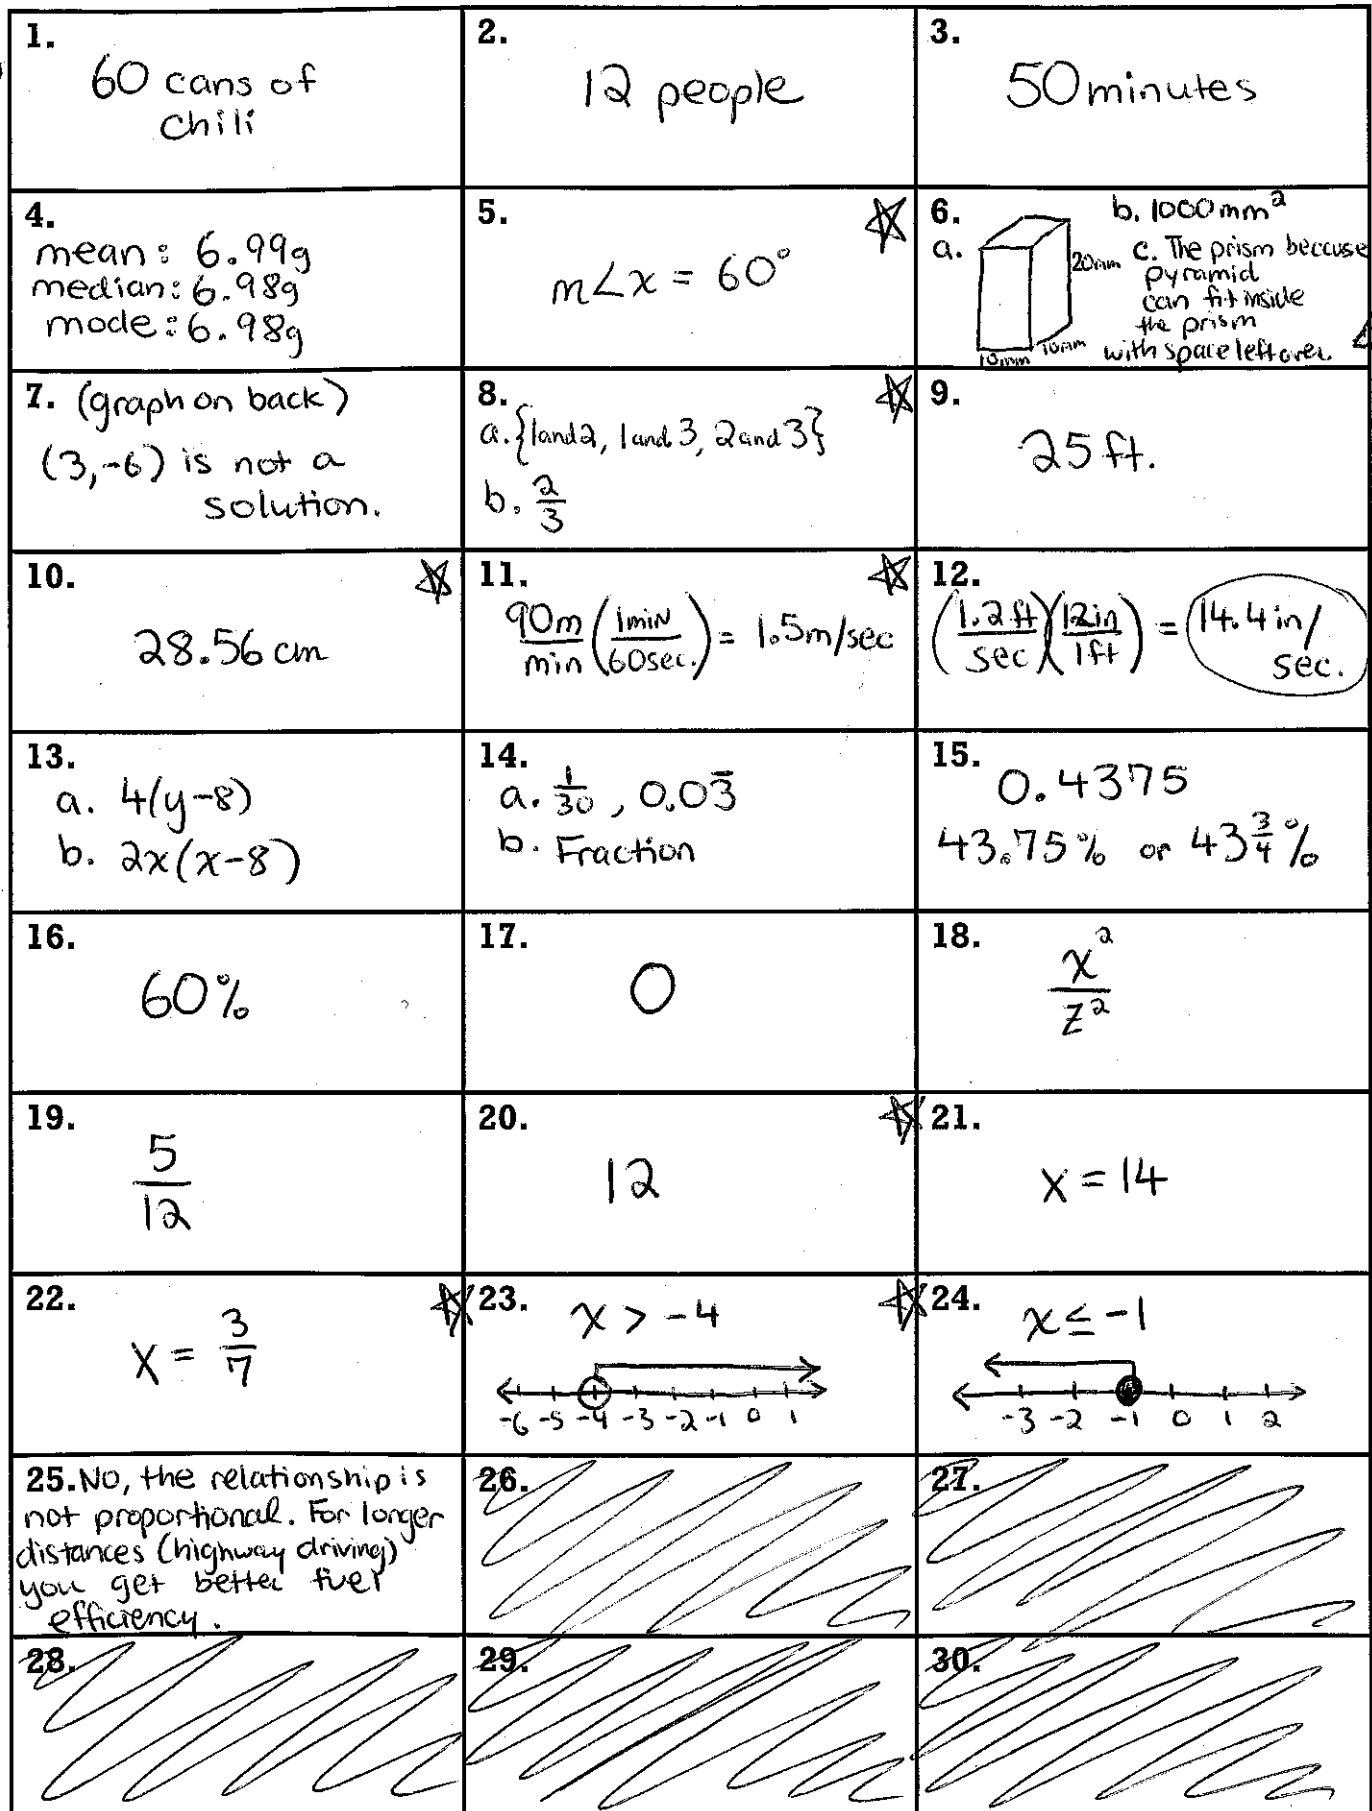 1.
60 cans of
chili
2.
12 people
3.
50 minutes
4.
mean: 6.99g
median: 6.98g
mode: 6.98g
5.
m∠x = 60°
6.
a.
20mm
10mm
10mm
b. 1000mm²
c. The prism because
pyramid
can fit inside
the prism
with space left over.
7. (graph on back)
(3,-6) is not a
solution.
8.
a. {1 and 2, 1 and 3, 2 and 3}
b. 2/3
9.
25 ft.
10.
28.56 cm
11.
90m/min (1min/60sec.) = 1.5m/sec
12.
(1.2 ft/sec)(12in/1ft) = 14.4 in/
sec.
13.
a. 4(y-8)
b. 2x(x-8)
14.
a. 1/30, 0.03̄
b. Fraction
15.
0.4375
43.75% or 43 3/4 %
16.
60%
17.
0
18.
x²/z²
19.
5/12
20.
12
21.
x = 14
22.
x = 3/7
23.
x > -4
-6 -5 -4 -3 -2 -1 0 1
24.
x ≤ -1
-3 -2 -1 0 1 2
25. No, the relationship is
not proportional. For longer
distances (highway driving)
you get better fuel
efficiency.
26.
27.
28.
29.
30.